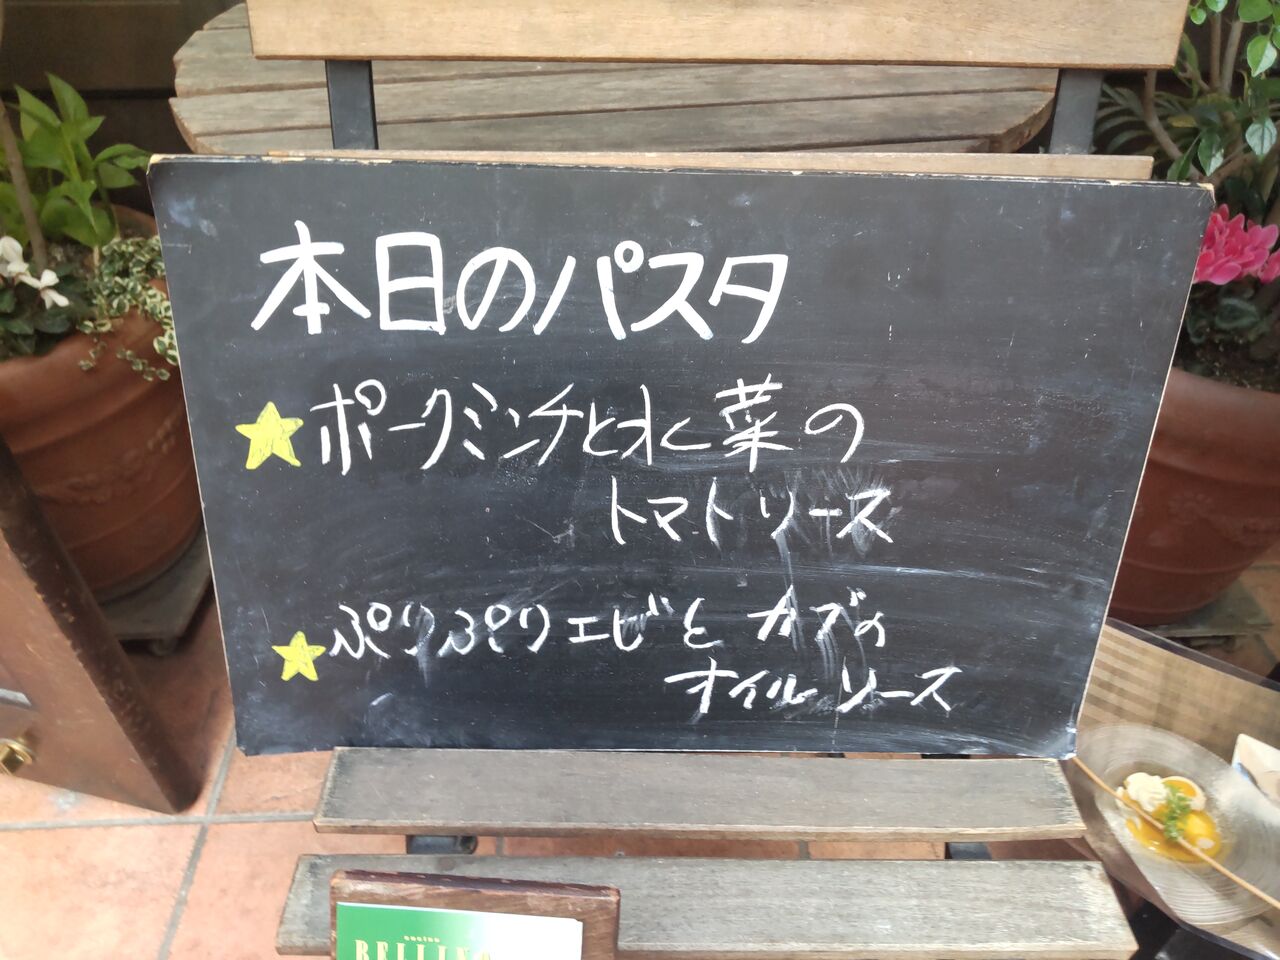 本日のパスタ
★ポークミンチと水菜の
トマトソース
★ぷりぷりエビと カブの
オイルソース
cucina
BELLINO